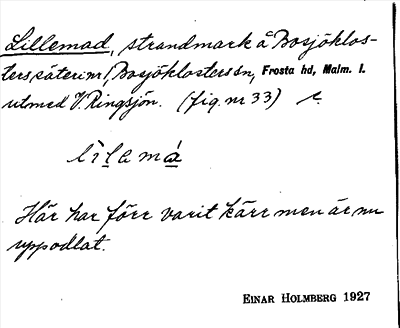 Lillemad, strandmark å Bosjöklos-
ters säteri nr 1, Bosjöklosters sn, Frosta hd, Malm. l.
utmed V. Ringsjön. (fig. nr 33)
lìlemá
Här har förr varit kärr men är nu
uppodlat.
EINAR HOLMBERG 1927